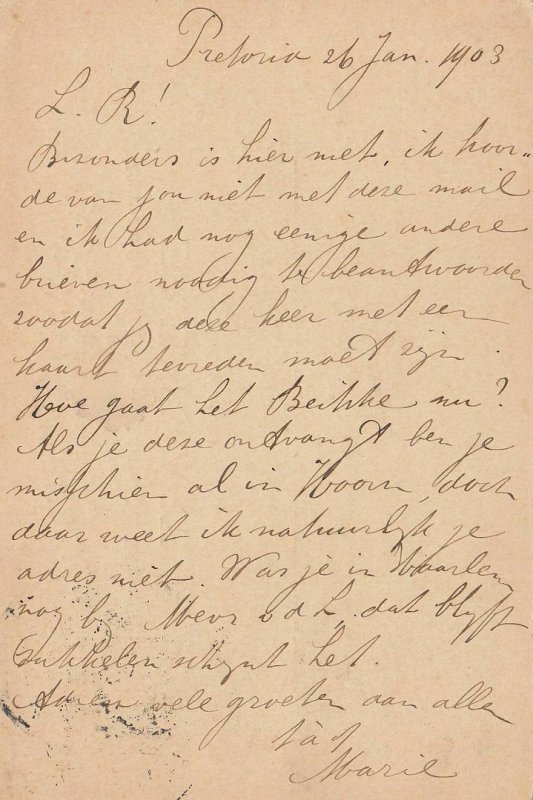 Pretoria 26 Jan. 1903
L. R!
Bizonders is hier niet, ik hoor„
de van jou niet met deze mail
en ik had nog eenige andere
brieven noodig te beantwoorden
zoodat je deze keer met een
kaart tevreden moet zijn.
Hoe gaat het Beitske nu?
Als je deze ontvangt ben je
misschien al in Hoorn, doch
daar weet ik natuurlijk je
adres niet. Was je in Haarlem
nog bij Mevr v d L„ dat blijft
sukkelen schijnt het.
vele groeten aan allen
t à t
Marie